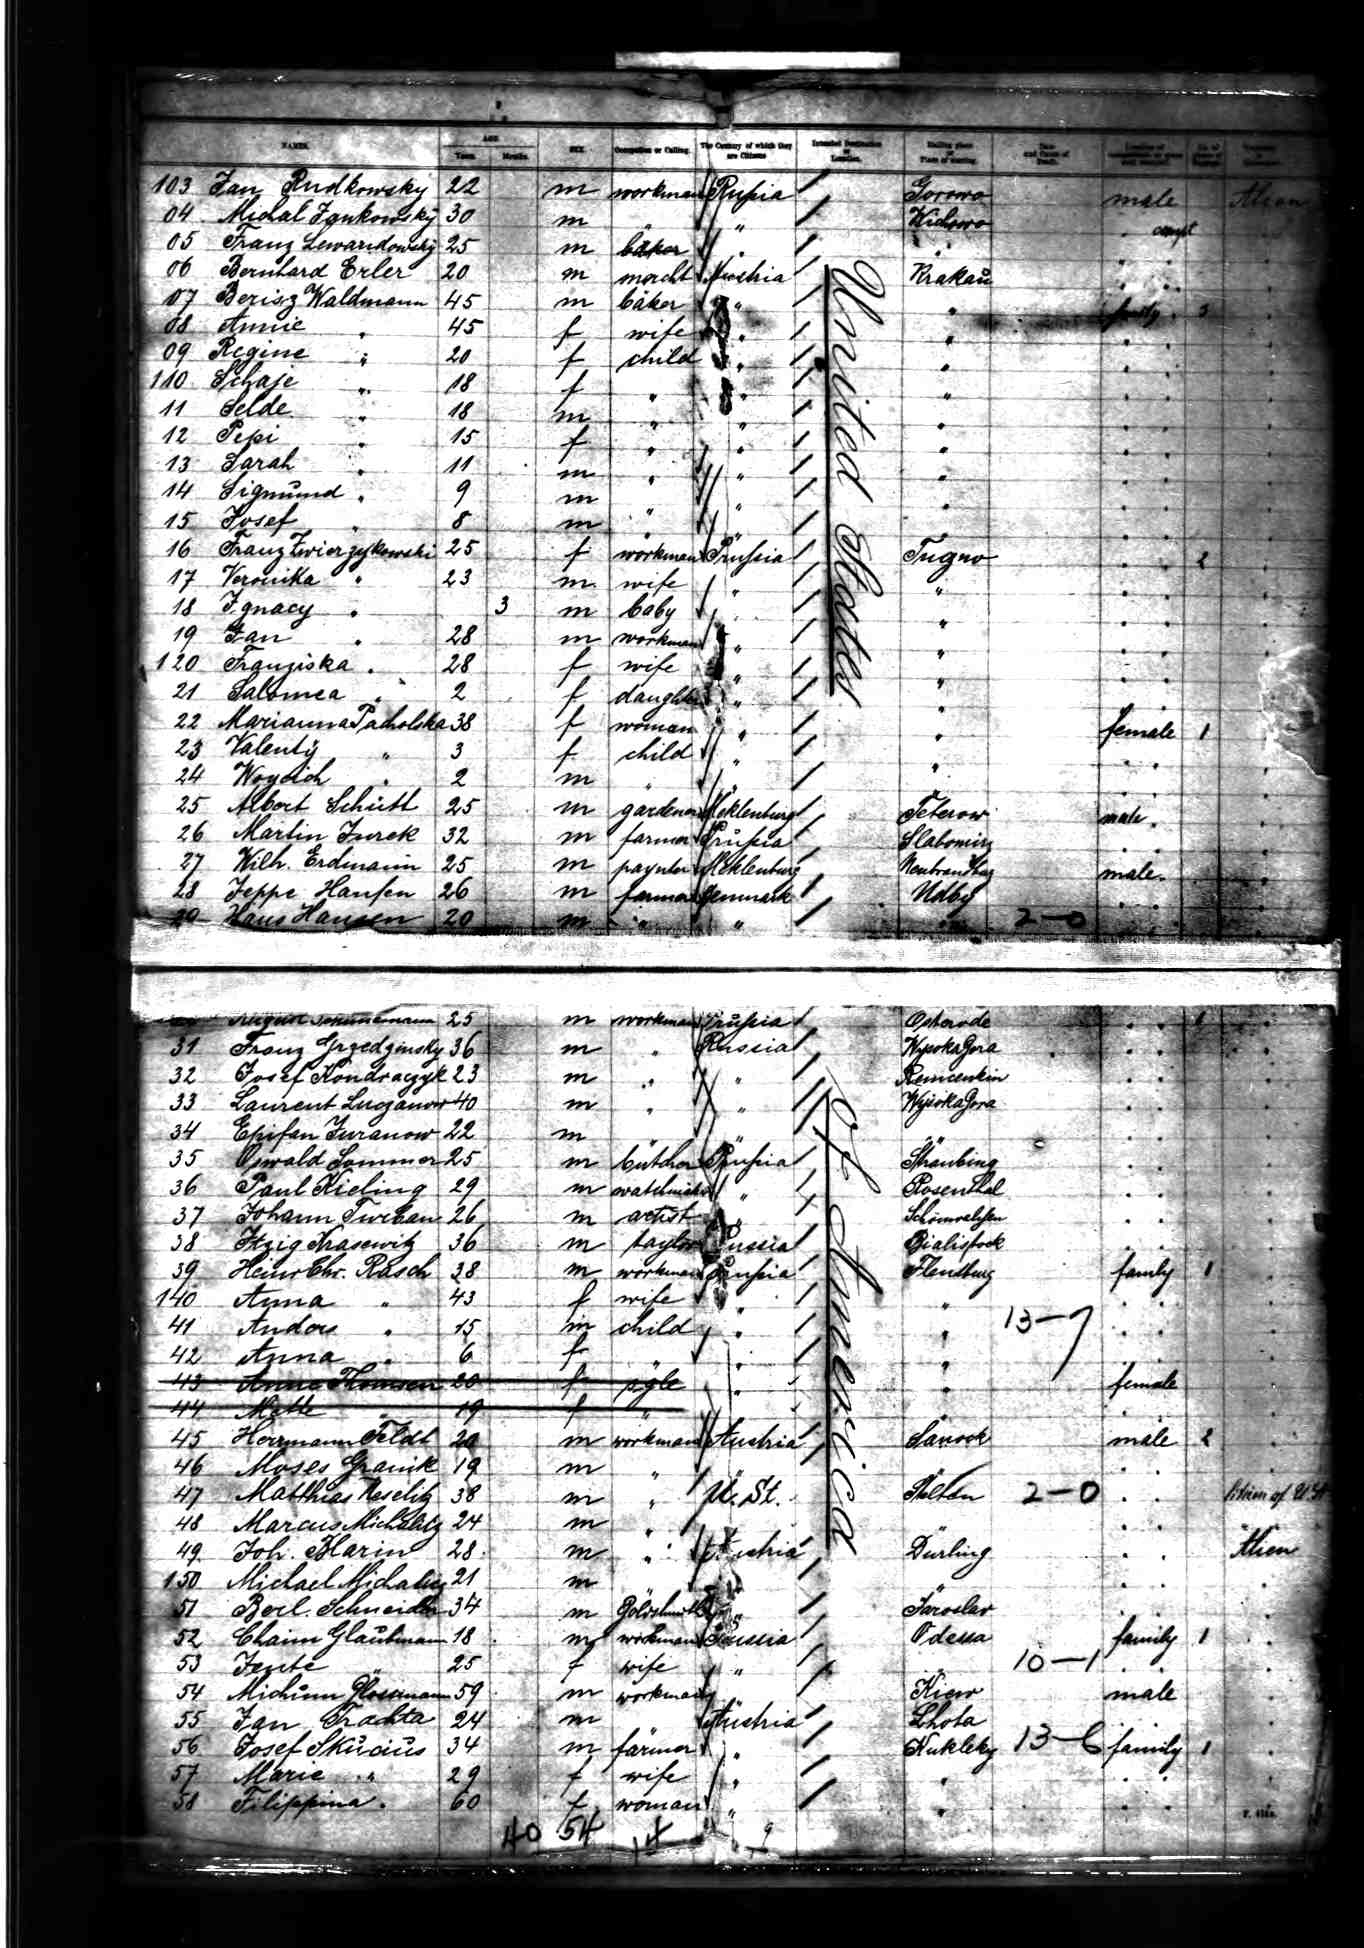 NAMES. AGE. Years. Months. SEX. Occupation or Calling. The Country of which they are Citizens Intended Destination or Location.
103 Jan Rudkowsky 22 m workman Rußia Gorowo male Alien
04 Michal Jankowsky 30 m " " Wichowo
05 Franz Lewandowsky 25 m baker " "
06 Bernhard Erler 20 m mercht Austria Krakau
07 Berisz Waldmann 45 m baker " " family 3
08 Annie " 45 f wife " "
09 Regine " 20 f child " "
110 Schaje " 18 f " " "
11 Selde " 18 m " " "
12 Pepi " 15 f " " "
13 Sarah " 11 m " " "
14 Sigmund " 9 m " " "
15 Josef " 8 m " " "
16 Franz Zwierzykowski 25 f workman Prußia Tugno 2
17 Veronika " 23 m wife " "
18 Ignacy " 3 m baby " "
19 Jan " 28 m workman " "
120 Franziska " 28 f wife " "
21 Salomea " 2 f daughter " "
22 Marianna Pacholska 38 f woman " " female 1
23 Valenty " 3 f child " "
24 Woycich " 2 m " "
25 Albert Schütt 25 m gardener Meklenburg Teterow male
26 Martin Jurek 32 m farmer Prußia
27 Wilh. Erdmann 25 m paynter Meklenburg Neubrandbug male
28 Jeppe Hansen 26 m farmer Denmark Udby
29 Hans Hansen 20 m " " " 2-0
United States
August 25 m workman Prußia Osterode
31 Franz Grzedzinsky 36 m " Russia Wysoka Gora
32 Josef Kondraczyk 23 m " "
33 Laurent Luczanow 40 m " " Wysoka Gora
34 Epifan Juranow 22 m
35 Oswald Sommer 25 m butcher Prußia Straubing
36 Paul Kieling 29 m watchmaker " Rosenthal
37 Johann 26 m artist "
38 Itzig Krasewitz 36 m taylor Russia Bialistock
39 Heinr Chr. Rasch 38 m workman Prußia Flensburg family 1
140 Anna " 43 f wife " "
41 Anders " 15 m child " " 13-7
42 Anna " 6 f " " "
43 Anna Thomsen 20 f sgle " " female
44 Mette " 19 f " " "
45 Herrmann Feldt 20 m workman Austria Sanock male 2
46 Moses Granik 19 m " " "
47 Matthias Neselitz 38 m " U. St. 2-0 Citizen of U. St
48 Marcus Michalitz 24 m " " "
49 Joh. Blarin 28 m " Austria Durling Alien
150 Michael Michalitz 21 m
51 Berl. Schneider 34 m Goldsmith " Jaroslav
52 Chaim Glaubmann 18 m workman Russia Odessa family 1
53 Jente " 25 f wife " " 10-1
54 59 m workman " Kiew male
55 Jan Trachta 24 m Austria Lhota
56 Josef Skucius 34 m farmer " Kukleky 13-6 family 1
57 Marie " 29 f wife " "
58 Filippina " 60 f woman " "
of America
40 54 14 9